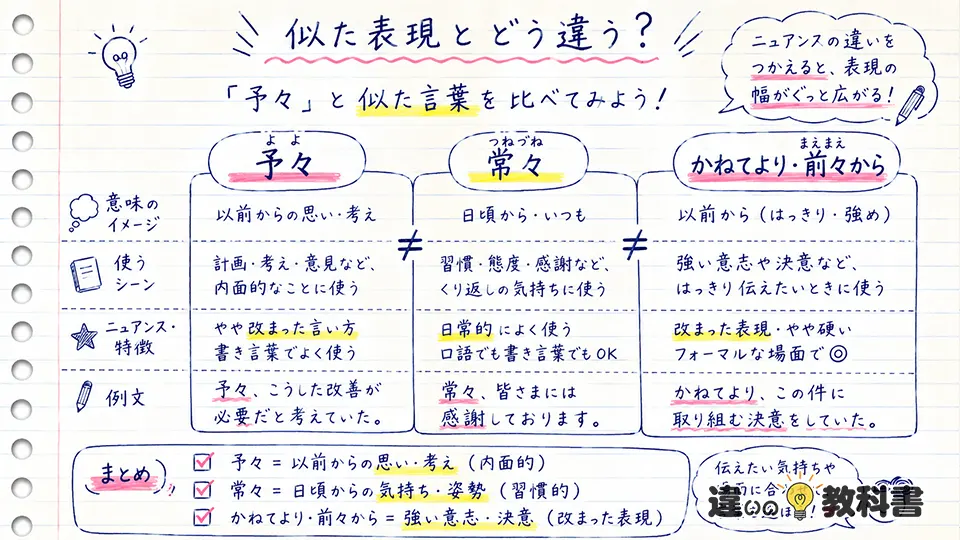 似た表現とどう違う？
「予々」と似た言葉を比べてみよう！
ニュアンスの違いを
つかえると、表現の
幅がぐっと広がる！
よ　よ
予々
つねづね
常々
まえまえ
かねてより・前々から
意味の
イメージ
以前からの思い・考え
≠
日頃から・いつも
≠
以前から（はっきり・強め）
使う
シーン
計画・考え・意見など、
内面的なことに使う
習慣・態度・感謝など、
くり返しの気持ちに使う
強い意志や決意など、
はっきり伝えたいときに使う
ニュアンス・
特徴
やや改まった言い方
書き言葉でよく使う
日常的によく使う
口語でも書き言葉でもOK
改まった表現・やや硬い
フォーマルな場面で◎
例文
予々、こうした改善が
必要だと考えていた。
常々、皆さまには
感謝しております。
かねてより、この件に
取り組む決意をしていた。
まとめ
予々 = 以前からの思い・考え（内面的）
常々 = 日頃からの気持ち・姿勢（習慣的）
かねてより・前々から = 強い意志・決意（改まった表現）
伝えたい気持ちや
違いの教科書